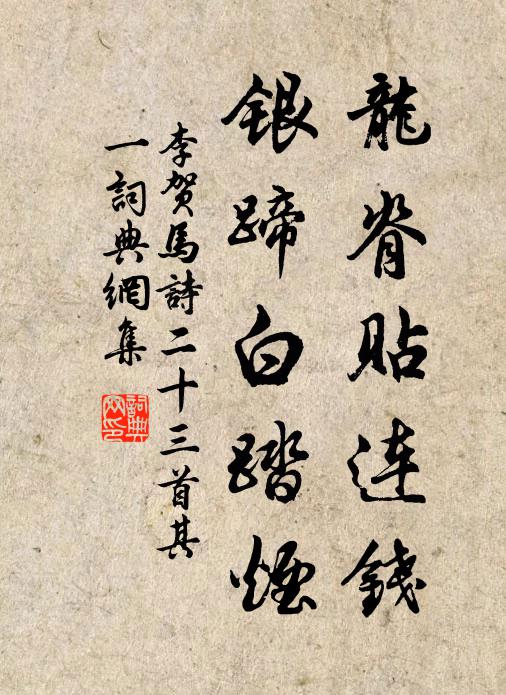 龍脊貼連錢
銀蹄白踏煙
李賀馬詩二十三首其
一詞典網集
詞典网印